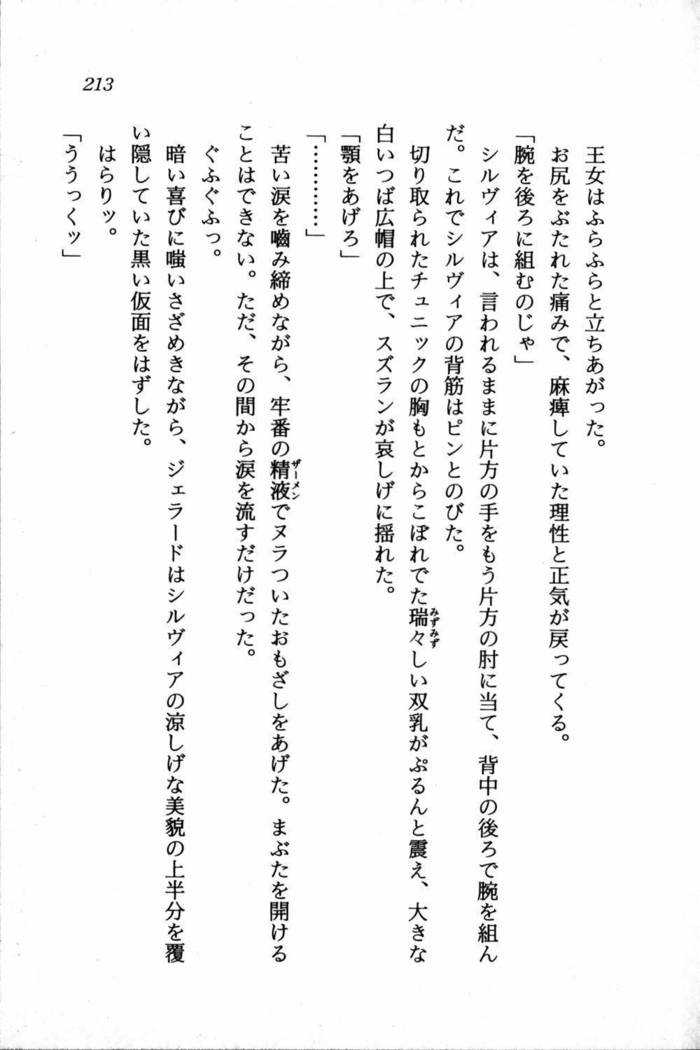 213
王女はふらふらと立ちあがった。
お尻をぶたれた痛みで、麻痺していた理性と正気が戻ってくる。
「腕を後ろに組むのじゃ」
シルヴィアは、言われるままに片方の手をもう片方の肘に当て、背中の後ろで腕を組ん
だ。これでシルヴィアの背筋はピンとのびた。
切り取られたチュニックの胸もとからこぼれでた瑞々しい双乳がぷるんと震え、大きな
白いつば広帽の上で、スズランが哀しげに揺れた。
「顎をあげろ」
「…………」
苦い涙を嚙み締めながら、牢番の精液でヌラついたおもざしをあげた。まぶたを開ける
ことはできない。ただ、その間から涙を流すだけだった。
ぐふぐふっ。
暗い喜びに嗤いさざめきながら、ジェラードはシルヴィアの涼しげな美貌の上半分を覆
い隠していた黒い仮面をはずした。
はらりッ。
「ううっくッ」
みずみず
ザーメン